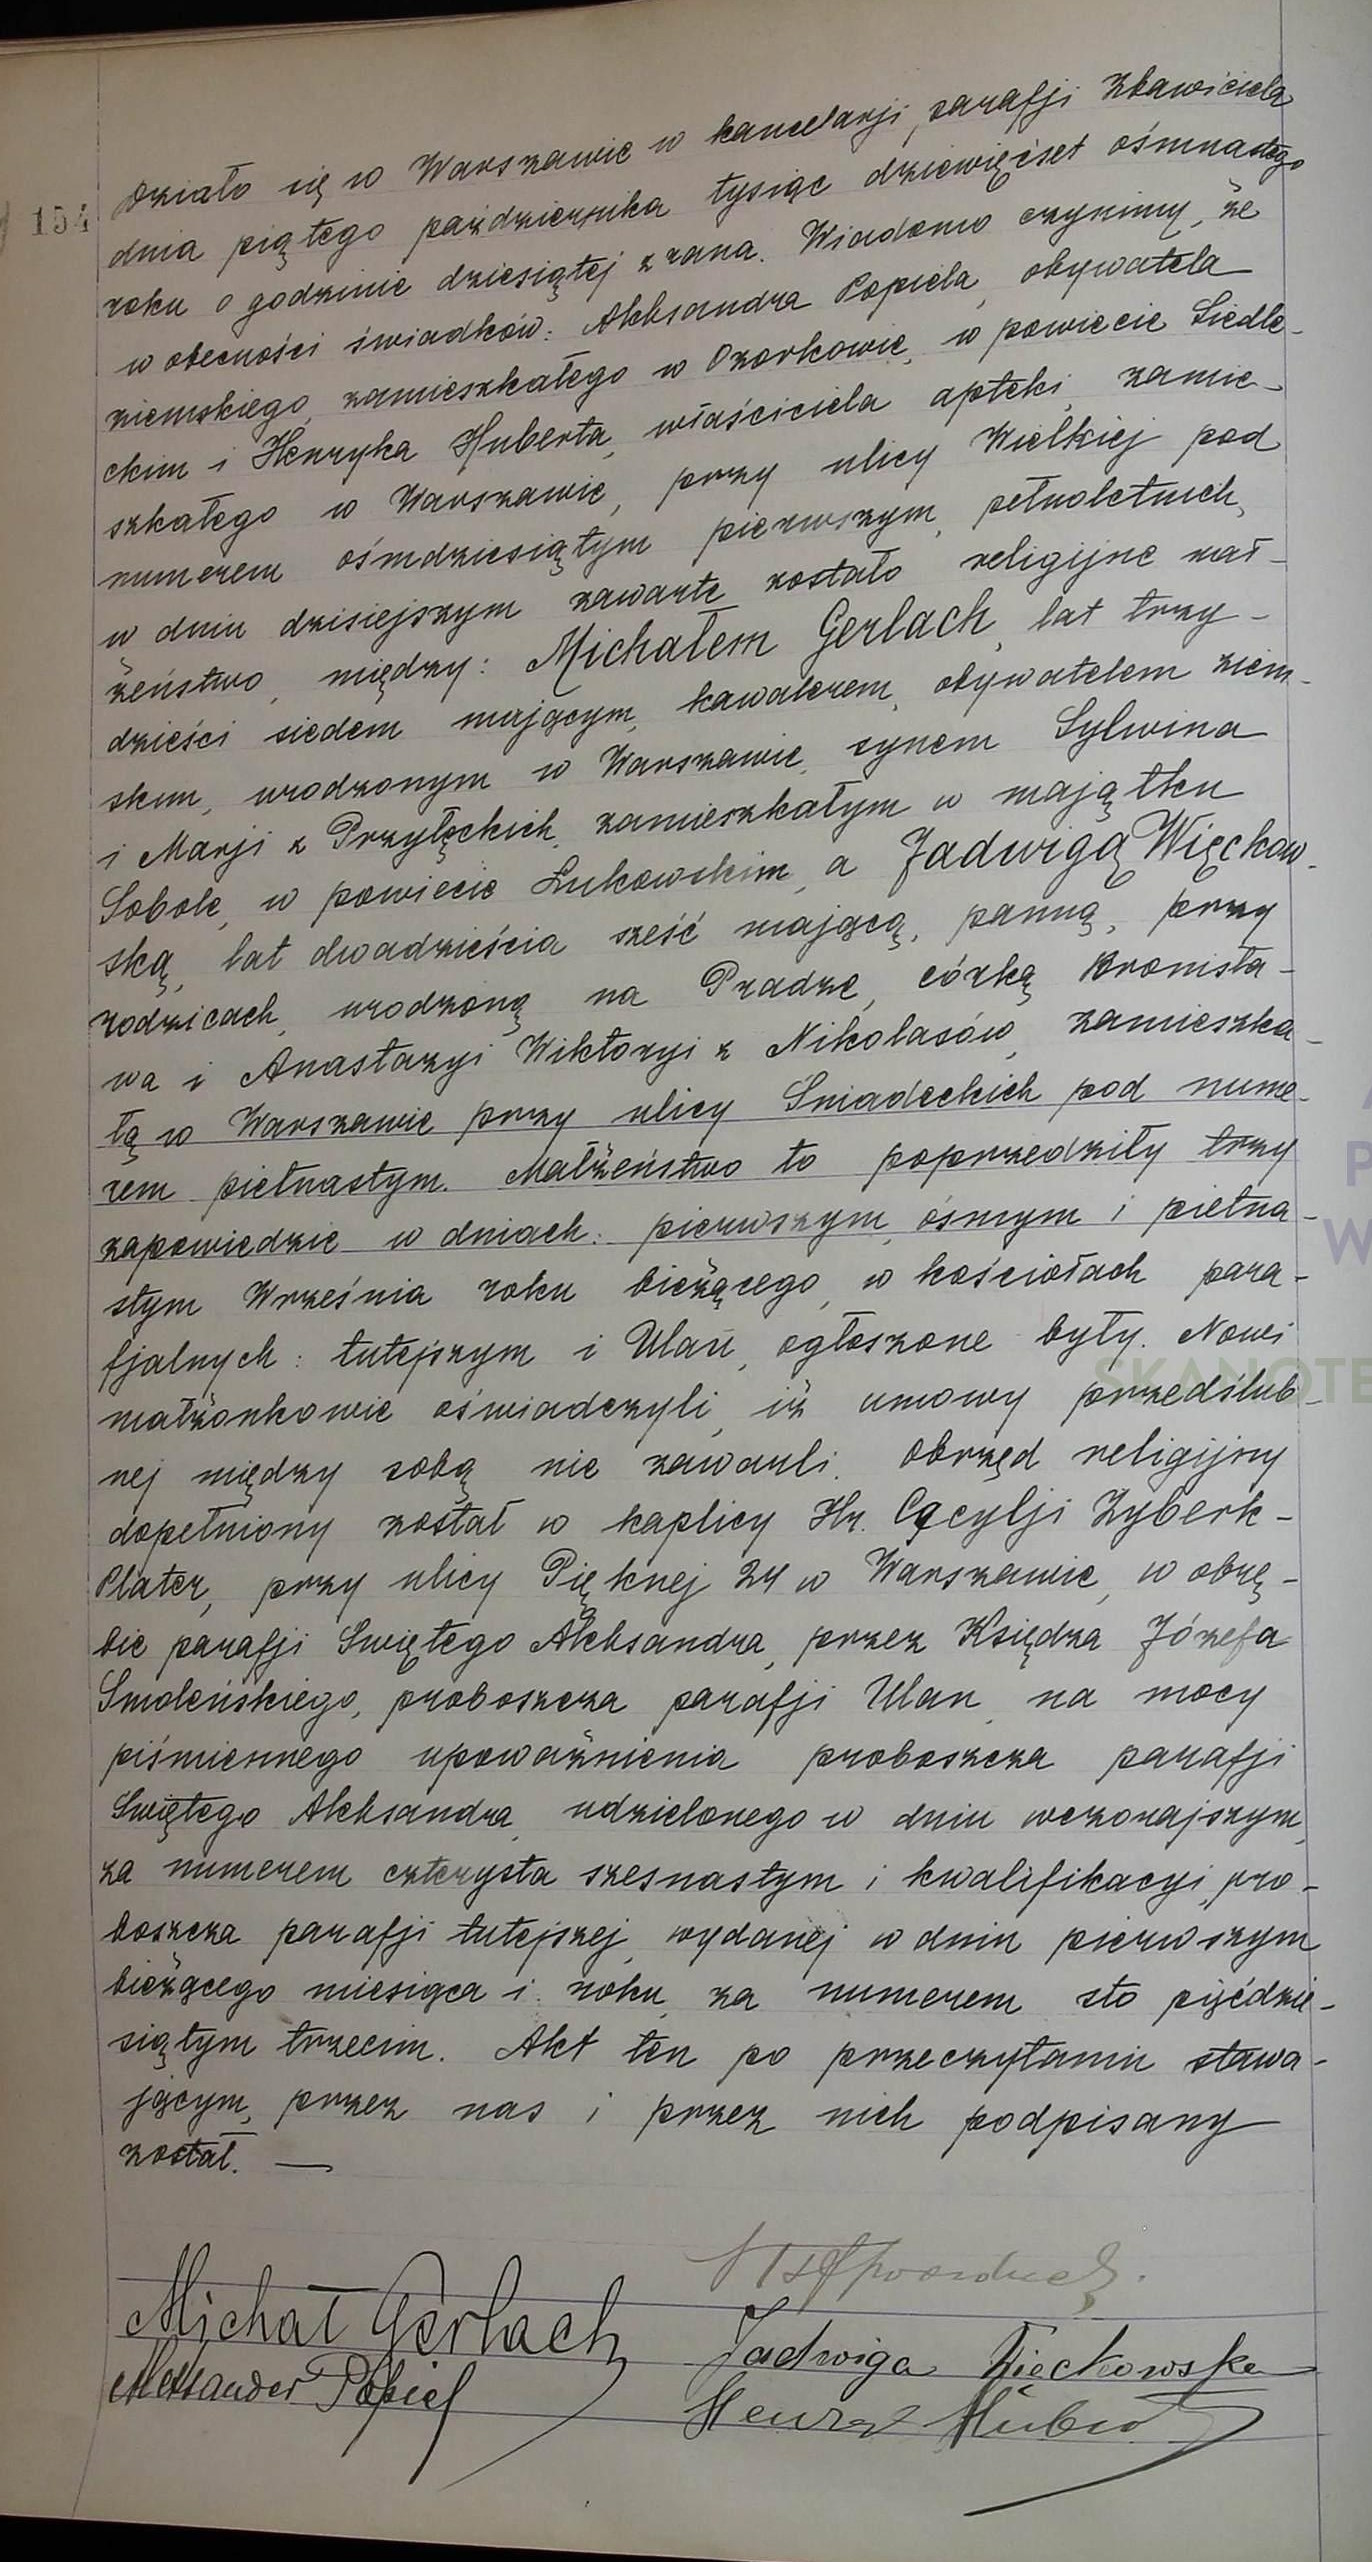 Działo się w Warszawie w kancelarji parafji Zbawiciela
154 dnia piątego października tysiąc dziewięćset ośmnastego
roku o godzinie dziesiątej z rana. Wiadomo czynimy, że
w obecności świadków: Aleksandra Popiela, obywatela
ziemskiego, zamieszkałego w Ozorkowie, w powiecie Siedle-
ckim i Henryka Huberta, właściciela apteki, zamie-
szkałego w Warszawie, przy ulicy Wielkiej pod
numerem ośmdziesiątym pierwszym, pełnoletnich,
w dniu dzisiejszym zawarte zostało religijne mał-
żeństwo, między: Michałem Gerlach, lat trzy-
dzieści siedem mającym, kawalerem, obywatelem ziem-
skim, urodzonym w Warszawie, synem Sylwina
i Marji z Przyłęckich, zamieszkałym w majątku
Sobole, w powiecie Łukowskim, a Jadwigą Więckow-
ską, lat dwadzieścia sześć mającą, panną, przy
rodzicach, urodzoną na Pradze, córką Bronisła-
wa i Anastazyi Wiktoryi z Nikolasów, zamieszka-
łą w Warszawie przy ulicy Śniadeckich pod nume-
rem piętnastym. Małżeństwo to poprzedziły trzy
zapowiedzie w dniach: pierwszym, ósmym i piętna-
stym Września roku bieżącego, w kościołach para-
fjalnych: tutejszym i Ulan, ogłoszone były. Nowi
małżonkowie oświadczyli, iż umowy przedślub-
nej między sobą nie zawarli. Obrzęd religijny
dopełniony został w kaplicy Hr. Cecylji Zyberk-
Plater, przy ulicy Pięknej 24 w Warszawie, w obrę-
bie parafji Świętego Aleksandra, przez Księdza Józefa
Smoleńskiego, proboszcza parafji Ulan, na mocy
piśmiennego upoważnienia proboszcza parafji
Świętego Aleksandra, udzielonego w dniu wczorajszym,
za numerem czterysta szesnastym i kwalifikacyi pro-
boszcza parafji tutejszej, wydanej w dniu pierwszym
bieżącego miesiąca i roku, za numerem sto pięćdzie-
siątym trzecim. Akt ten po przeczytaniu stawa-
jącym, przez nas i przez nich podpisany
został. —
Michał Gerlach
Jadwiga Więckowska
Aleksander Popiel
Henryk Hubert
SKANOTE